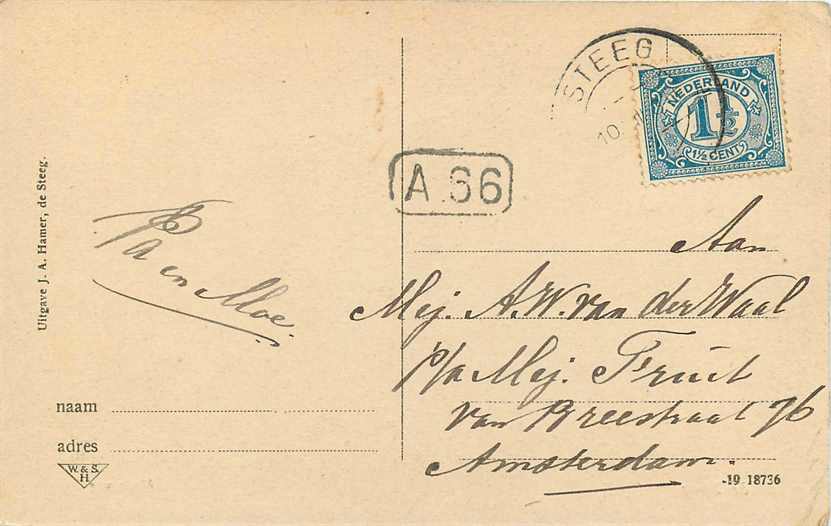 Uitgave J. A. Hamer, de Steeg.
Pa en Moe
naam
adres
W. & S.
H.
A 66
STEEG
10
NEDERLAND
1½
1½ CENT
Aan
Mej. A.W. van der Waal
p/a Mej. Fruit
van Breestraat 76
Amsterdam.
-19 18736